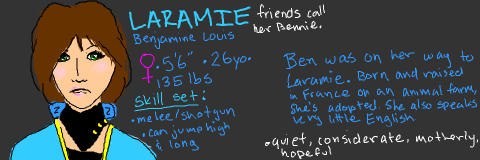 LARAMIE
friends call
her Bennie.
Benjamine Louis
♀ • 5'6" • 26yo.
135 lbs
skill set:
• melee/shotgun
• can jump high
& long
Ben was on her way to
Laramie. Born and raised
in France on an animal farm,
She's adopted. She also speaks
very little English.
• quiet, considerate, motherly,
hopeful